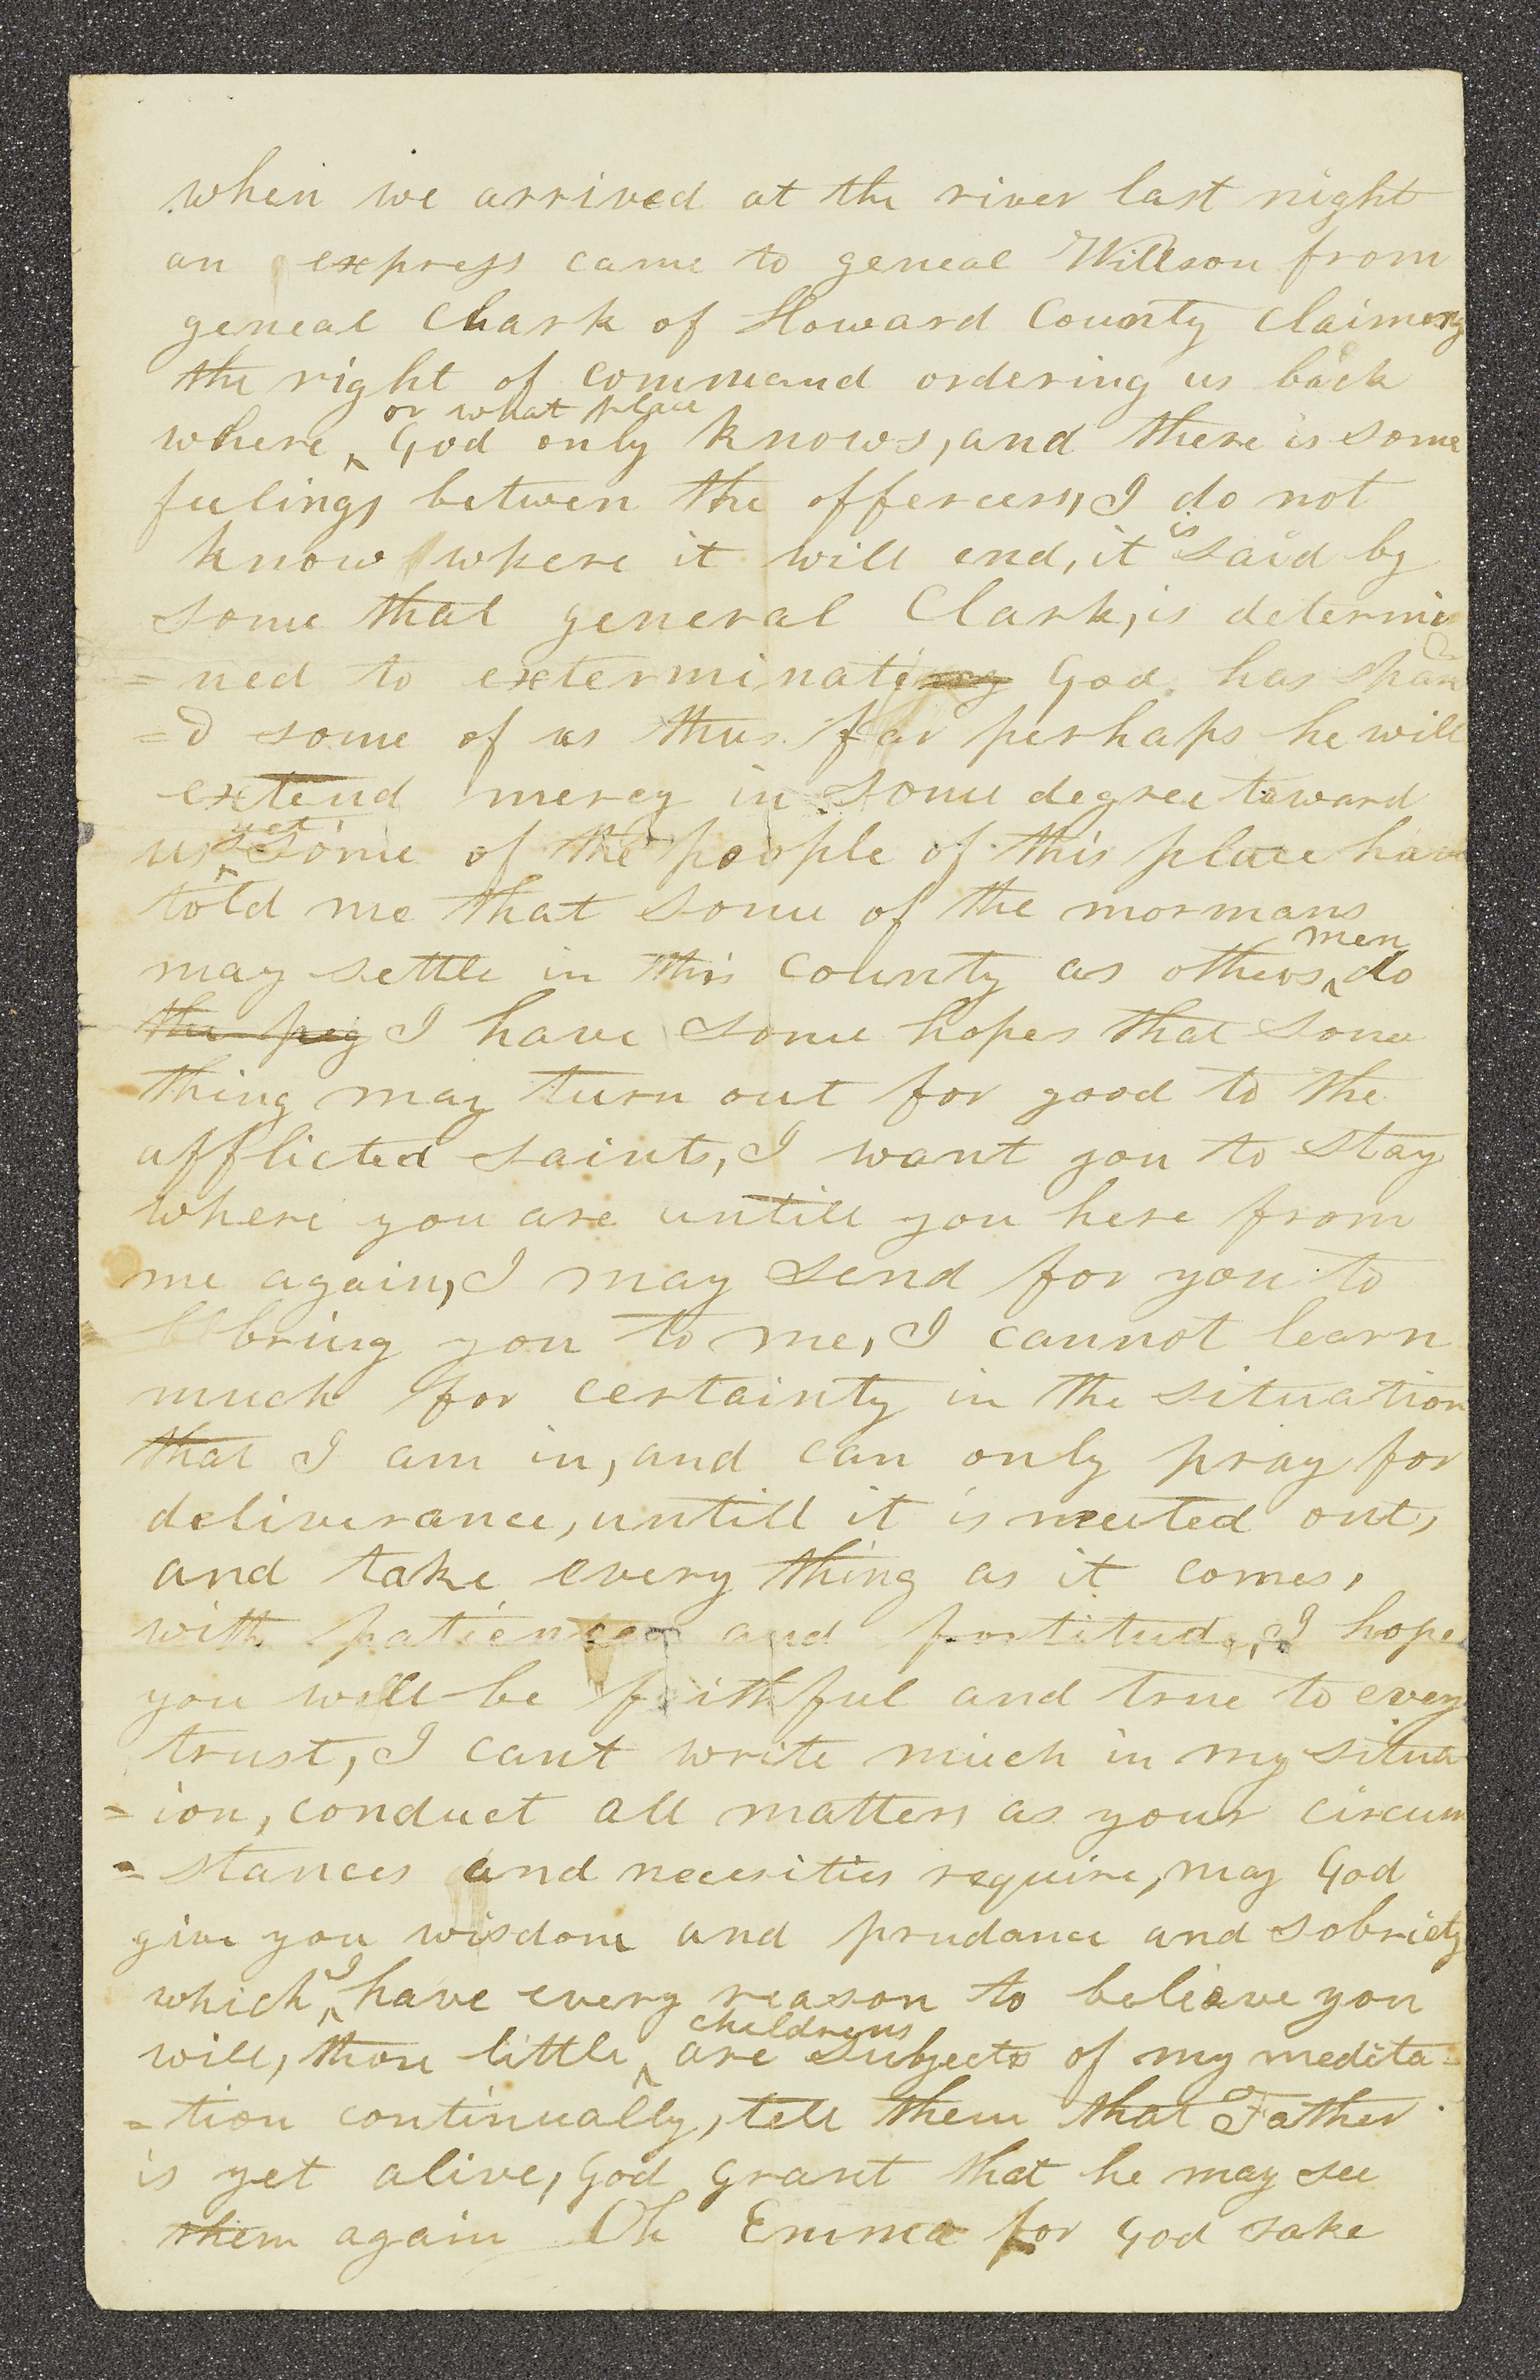 when we arrived at the river last night
an express came to geneal Willson from
geneal Chark of Howard County claimeng
the right of command ordering us back
where or what place God only knows, and there is some
feelings betwen the offercers, I do not
know where it will end, it is said by
some that general Clark, is determi
=ned to exterminate God has spare
=d some of us thus far perhaps he will
extend mercy in some degree toward
us yet some of the people of this place have
told me that some of the mormans
may settle in this county as others men do
the peg I have some hopes that some
thing may turn out for good to the
afflicted saints, I want you to stay
where you are untill you here from
me again, I may send for you to
bring you to me, I cannot learn
much for certainty in the situation
that I am in, and can only pray for
deliverance, untill it is meeted out,
and take every thing as it comes,
with patience and fortitude, I hope
you will be faithful and true to every
trust, I cant write much in my situa
=ion, conduct all matters as your circum
=stances and necesities require, may God
give you wisdom and prudance and sobriety
which I have every reason to believe you
will, those little childrens are subjects of my medita
=tion continually, tell them that Father
is yet alive, God grant that he may see
them again Oh Emma for God sake